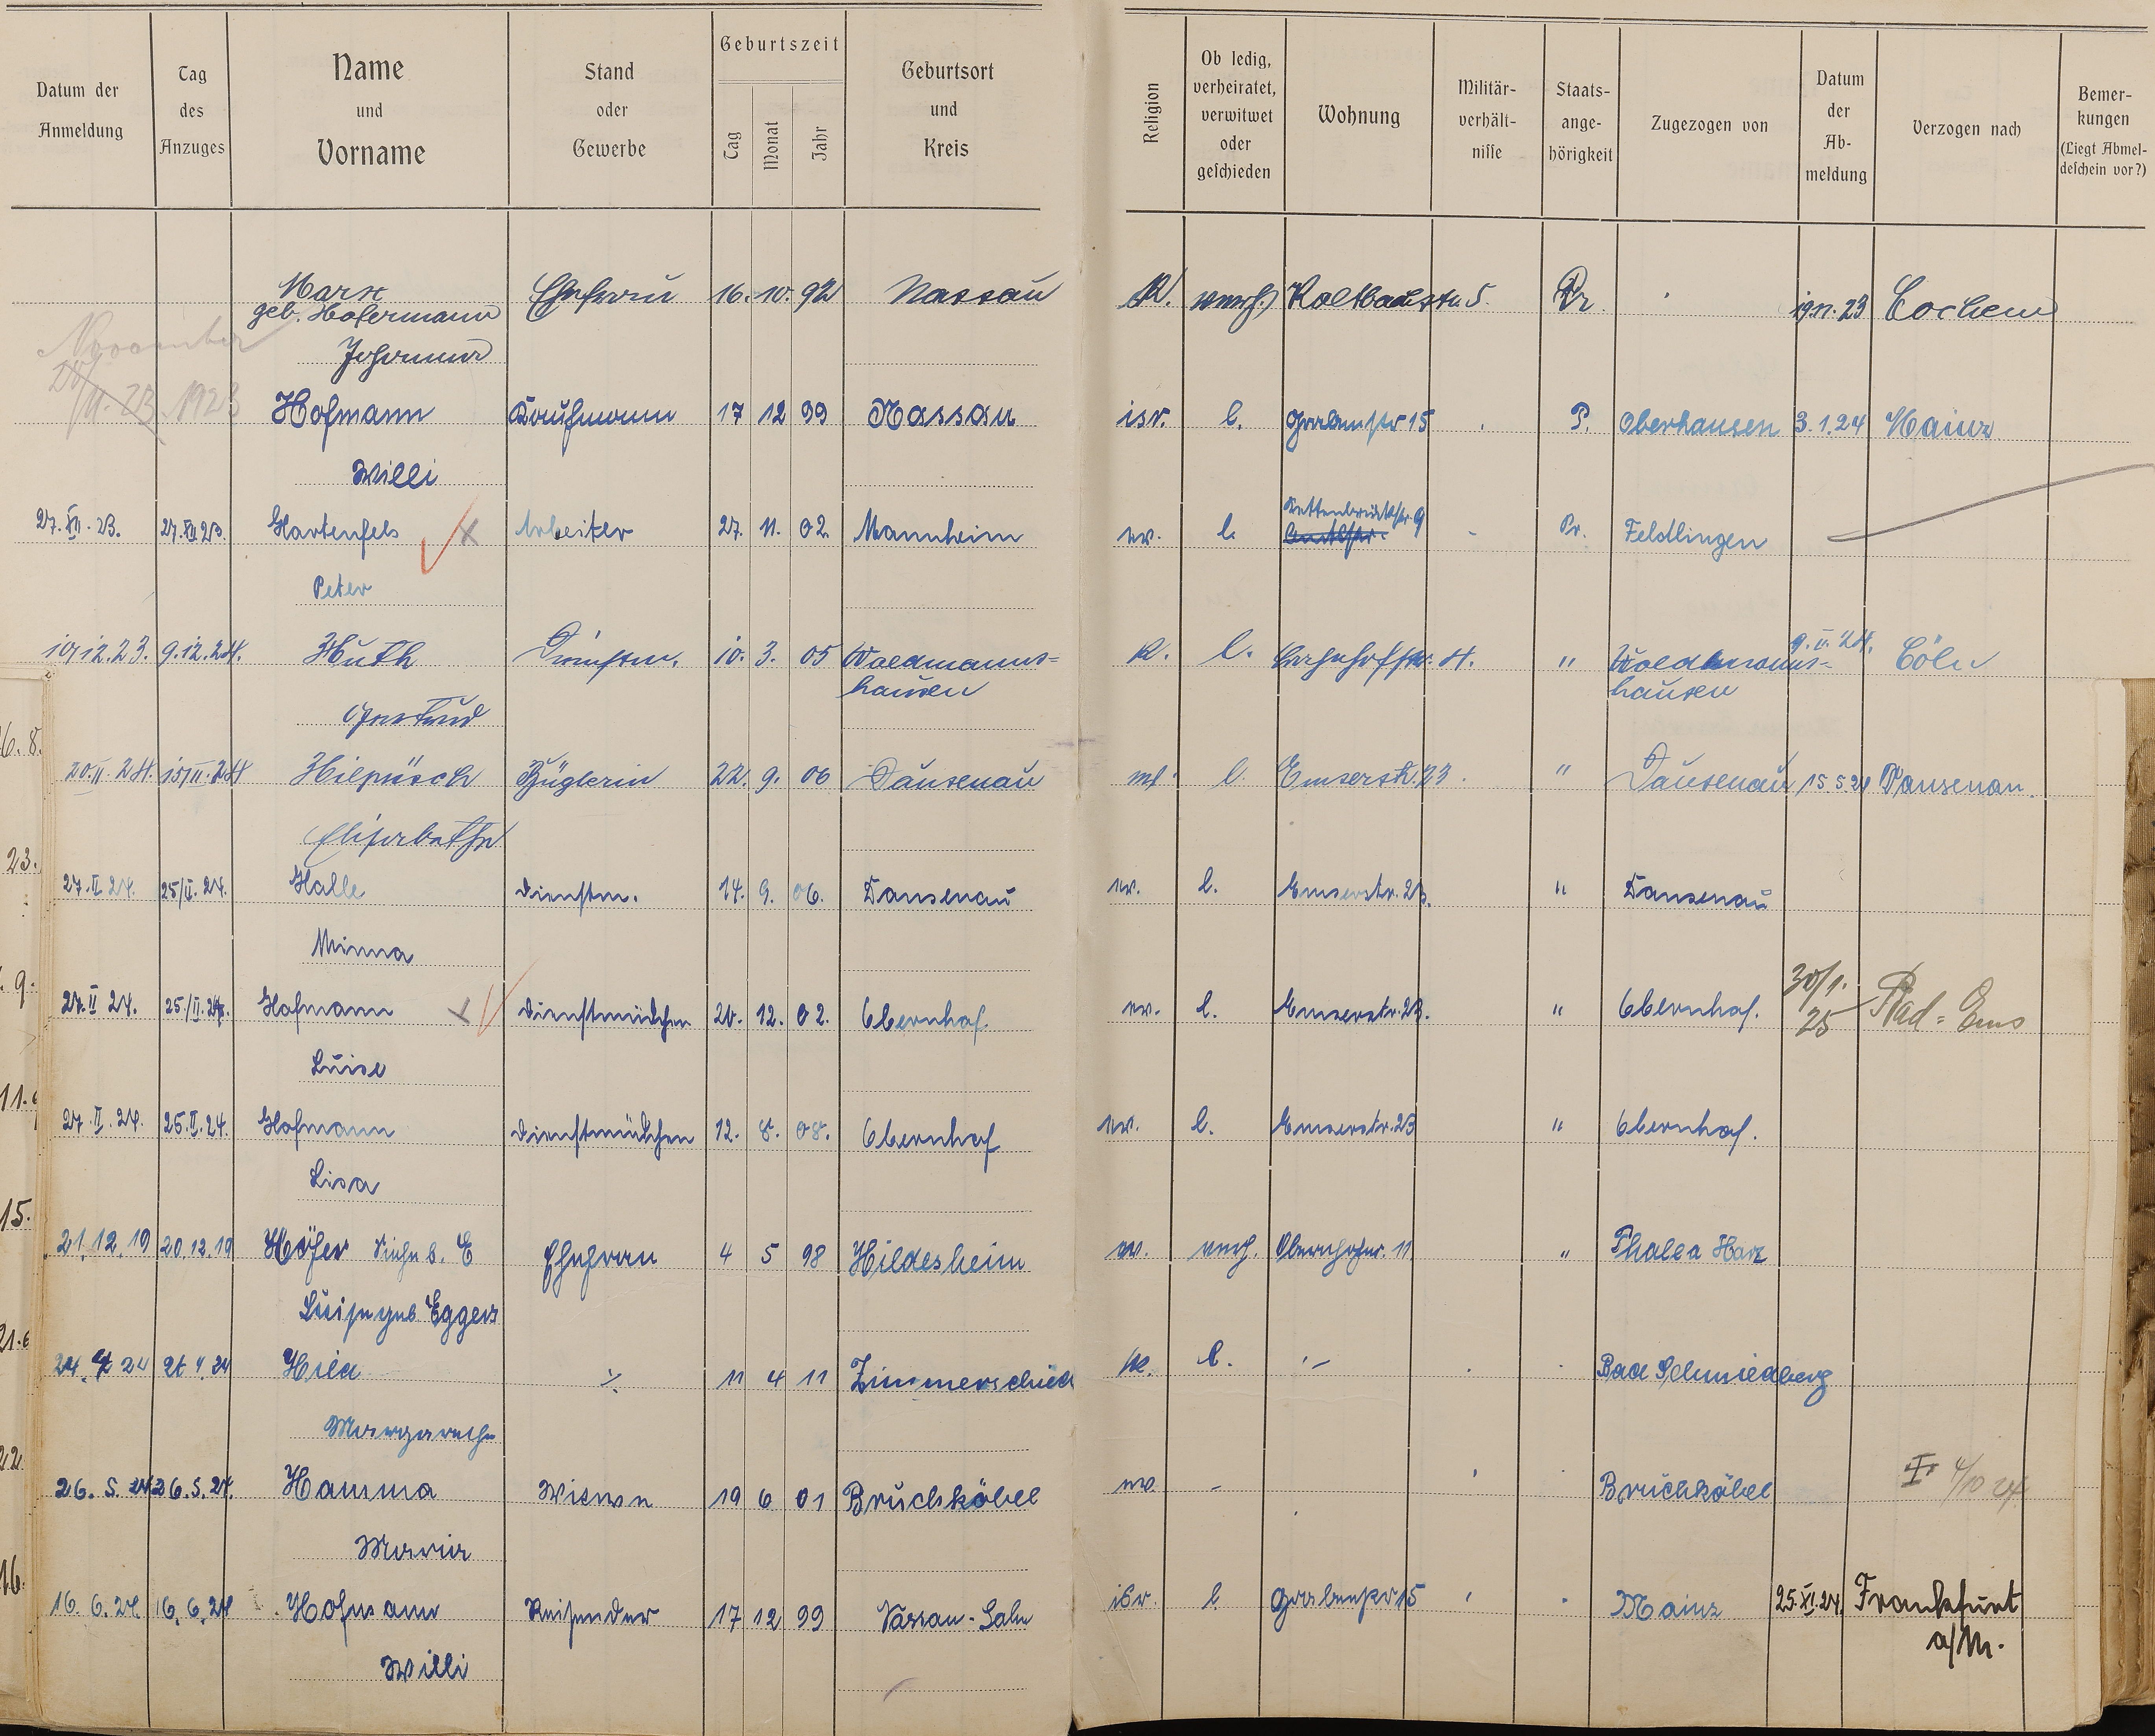 Datum der Anmeldung
Tag des Anzuges
Name und Vorname
Stand oder Gewerbe
Geburtszeit
Tag Monat Jahr
Geburtsort und Kreis
Religion
Ob ledig, verheiratet, verwitwet oder geschieden
Wohnung
Militär-verhält-nisse
Staats-ange-hörigkeit
Zugezogen von
Datum der Ab-meldung
Verzogen nach
Bemer-kungen (Liegt Abmel-deschein vor?)
Marx Ehefrau 16. 10. 92 Nassau K. verh. Kaltbachstr. 5. Pr. 19.11.23 Cochem
geb. Hofermann
Johanna
November
11.23 1923
Hofmann Kaufmann 17 12 99 Nassau isr. l. Grabenstr 15 P. Oberhausen 3.1.24 Mainz
Willi
Kettenbrückstr. 9
27.XII.23. 27.XII.23. Hartenfels Arbeiter 27. 11. 02. Mannheim ev. l. Pr. Feldlingen
Peter
10/12.23. 9.12.24. Huth Dienstm. 10. 3. 05 Waldmanns= K. l. Bahnhofstr. 4. " Waldmanns= 9.II.24. Cöln
hausen hausen
Gertrud
20.II.24. 15/II.24 Hilpüsch Büglerin 22. 9. 06 Dausenau l. Emserstr. 23. " Dausenau 15.5.24 Dausenau.
Elisabethe
27.II 24. 25/II.24. Halle Dienstm. 14. 9. 06. Dausenau ev. l. Emserstr. 23. " Dausenau
Minna
27.II 24. 25/II.24. Hofmann Dienstmädchen 20. 12. 02. Obernhof. ev. l. Emserstr. 23. " Obernhof. 30/1. 25 Bad=Ems
Luise
27.II.24. 25.II.24. Hofmann Dienstmädchen 12. 8. 08. Obernhof ev. l. Emserstr. 23 " Obernhof.
Lisa
21.12.19 20.12.19 Höfer siehe b. E Ehefrau 4 5 98 Hildesheim ev. verh. Obernhoferstr. 11 " Thale a Harz
Luise geb. Eggers
24.4 24 4.24 Hild ⁒ 11 4 11 Zimmerschied l. Bad Schmiedberg
Margarethe
26.5.24 26.5.24. Hamma Witwe 19 6 01 Bruchköbel ev - Bruchköbel 4/10 24
Maria
16.6.24 16.6.24 Hofmann Reisender 17 12 99 Nassau-Lahn isr. l. Grabenstr 15 Mainz 25.XI.24. Frankfurt
a/M.
Willi